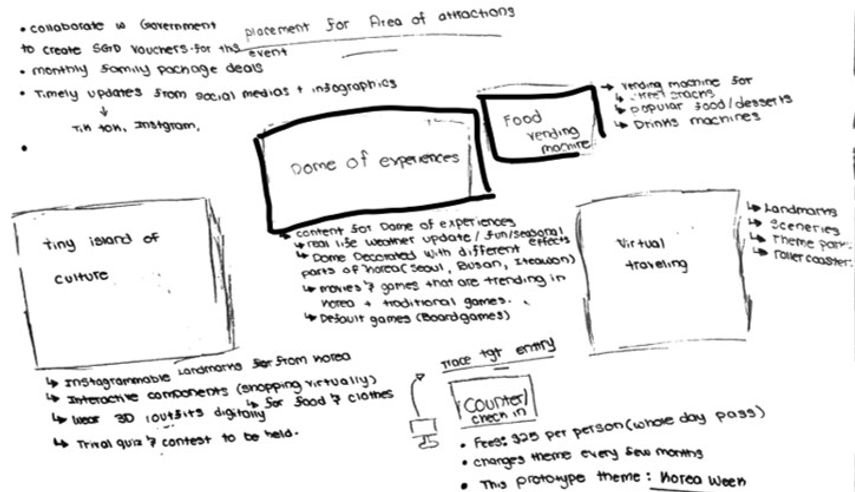 • collaborate w Government
to create SGD vouchers for this event
• monthly family package deals
• Timely updates from social medias + infographics
↓
Tik Tok, Instgram,
•
placement for Area of attractions
Dome of experiences
Food
vending
machine
↳ vending machine for
↳ street snacks
↳ popular food/desserts
↳ Drinks machines
tiny island of
culture
↳ content for Dome of experiences
↳ real life weather update/ fun/seasonal
↳ Dome Decorated with different effects
parts of Korea (Seoul, Busan, Iteawon)
↳ movies & games that are trending in
Korea + traditional games.
↳ Default games (Boardgames)
Virtual
traveling
↳ Landmarks
↳ Sceneries
↳ Theme park
↳ roller coaster
↳ Instagrammable Landmarks from Korea
↳ Interactive components (shopping virtually)
↳ for food & clothes
↳ wear 3D outfits digitally
↳ Trival quiz & contest to be held.
Trace tgt entry
Counter/
check in
• Fees: $25 per person (whole day pass)
• changes theme every few months
• This prototype theme: Korea Week